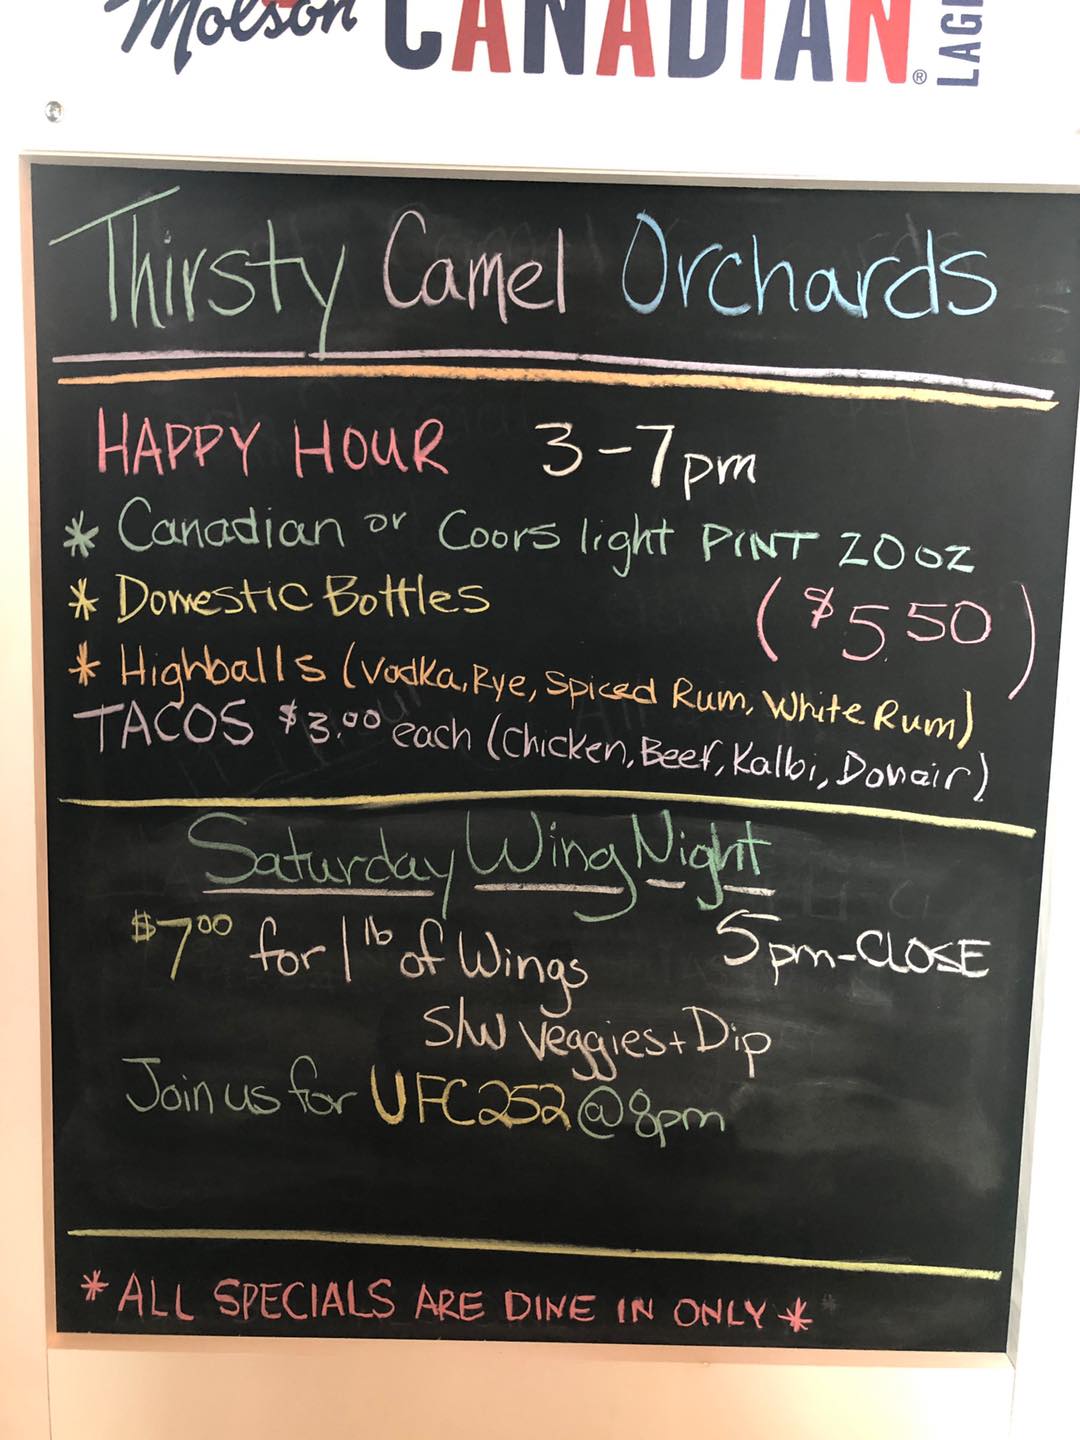 Molson CANADIAN® LAGE
Thirsty Camel Orchards
HAPPY HOUR 3-7pm
* Canadian or Coors light PINT 20oz
* Domestic Bottles ($5.50)
* Highballs (Vodka, Rye, Spiced Rum, White Rum)
TACOS $3.00 each (Chicken, Beef, Kalbi, Donair)
Saturday Wing Night
$7.00 for 1 lb of Wings 5pm-CLOSE
S/W Veggies + Dip
Join us for UFC 252 @ 8pm
* ALL SPECIALS ARE DINE IN ONLY *